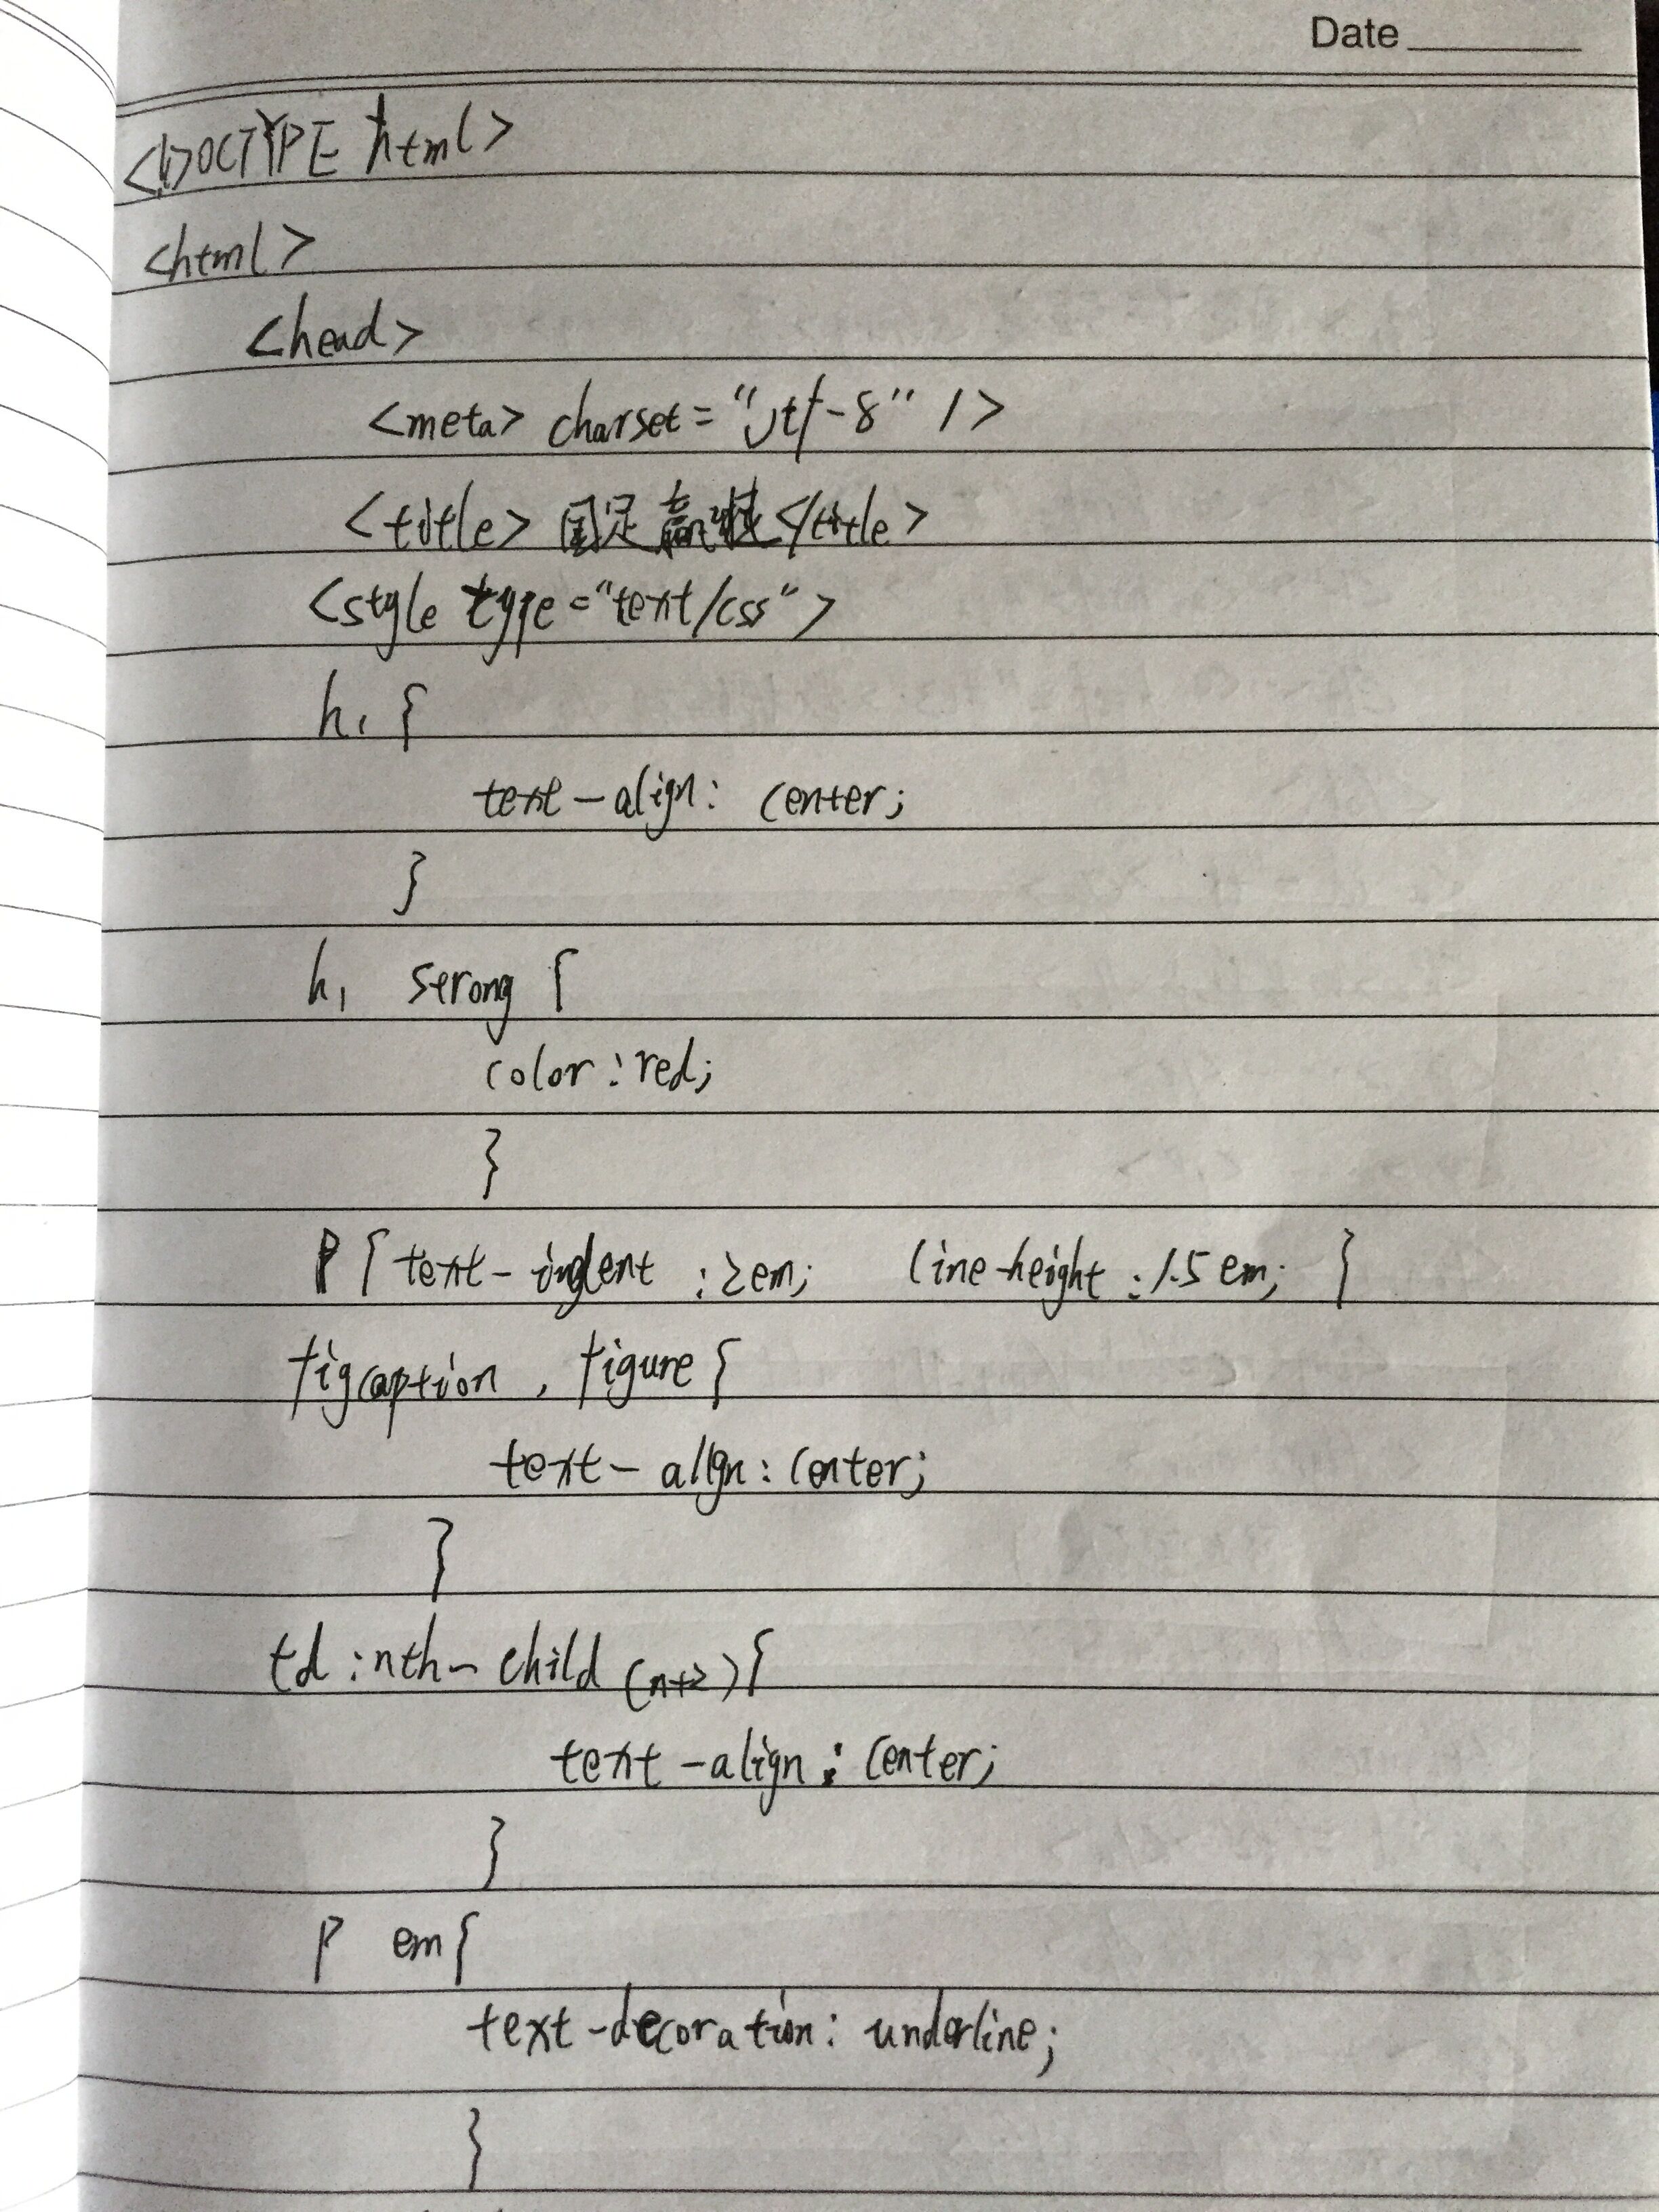 Date
<!DOCTYPE html>
<html>
<head>
<meta> charset="utf-8" />
<title> 国足赢 </title>
<style type="text/css">
h1 {
text-align: center;
}
h1 strong {
color: red;
}
P { text-indent : 2em; line-height : 1.5em; }
figcaption , figure {
text-align: center;
}
td :nth-child (n+2) {
text-align: center;
}
p em {
text-decoration: underline;
}